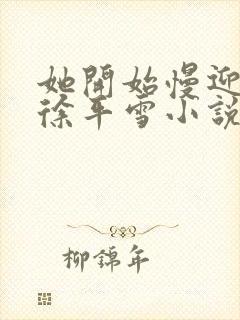 她開始慢迎
徐年雪小說
柳錦年